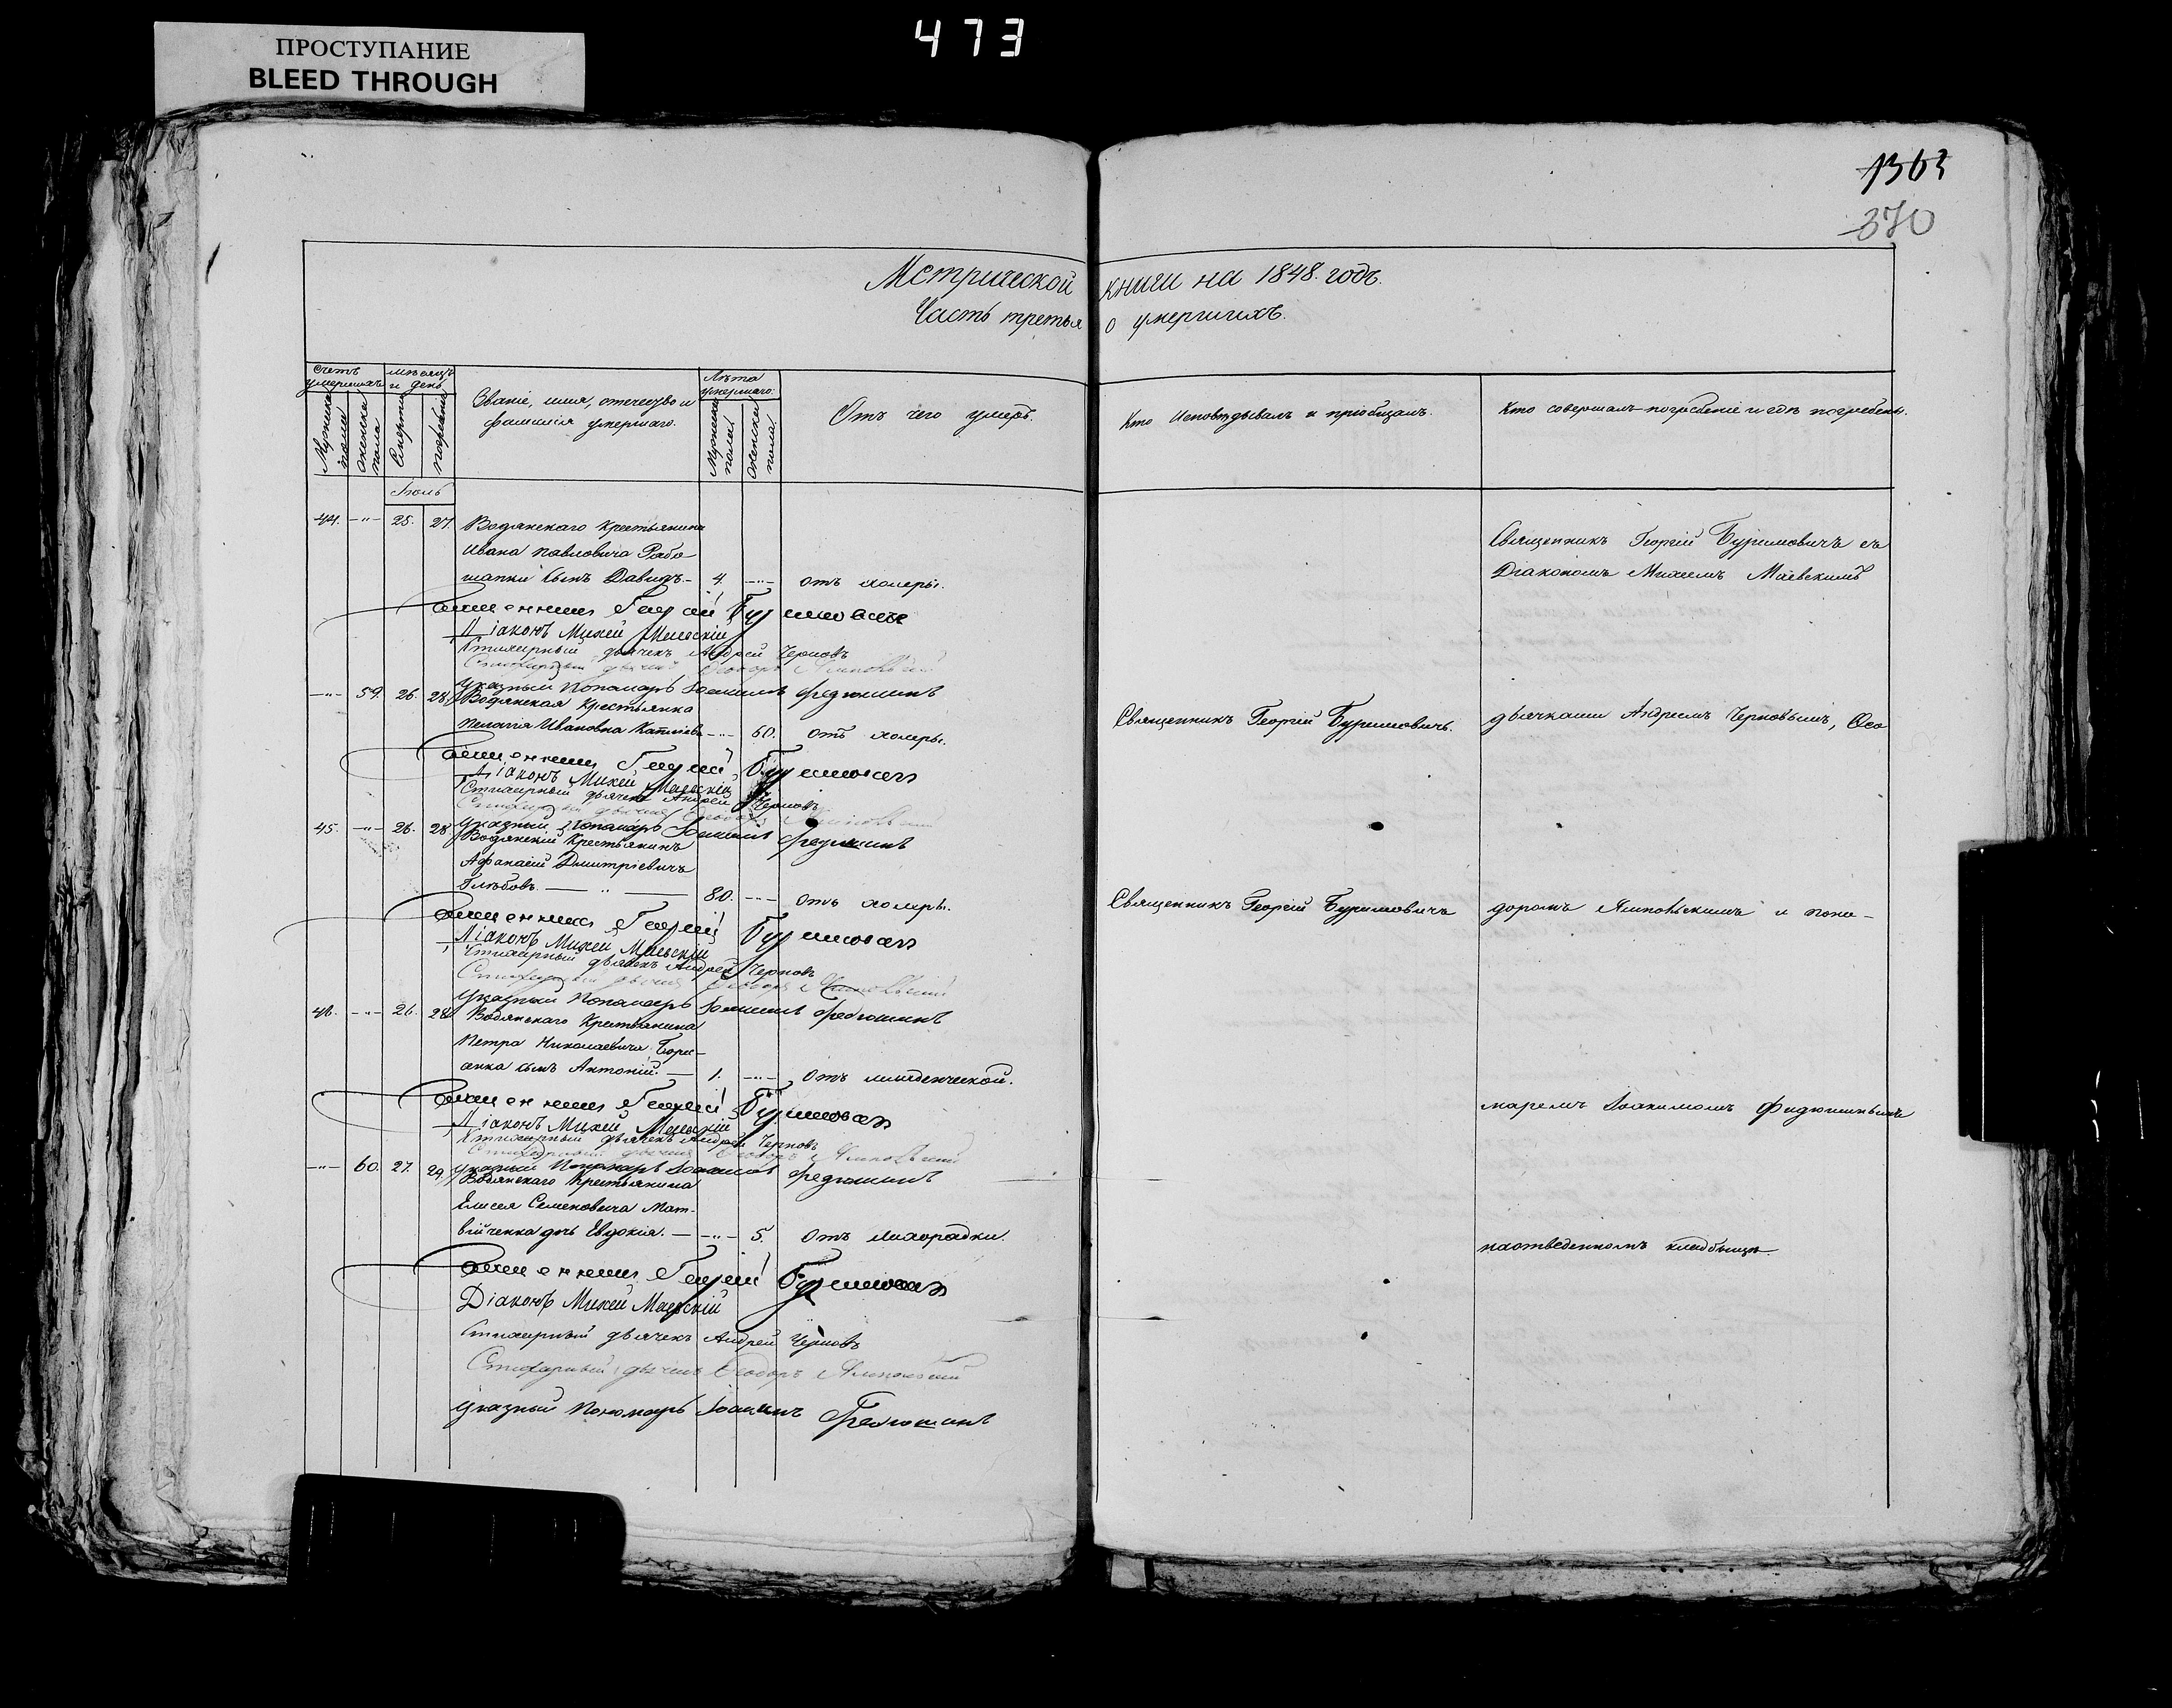 ПРОСТУПАНИЕ
BLEED THROUGH
473
1363
370
Метрической книги на 1848. годъ.
Часть третья о умершихъ.
Счетъ умершихъ
Мужеска пола
Женска пола
мѣсяцъ и день
Смерти
погребенія
Званіе, имя, отечество и
фамилія умершаго.
Лѣта умершаго.
Мужеска пола
Женска пола
Отъ чего умеръ.
Кто исповѣдывалъ и пріобщалъ.
Кто совершалъ погребеніе и гдѣ погребены.
Іюль
44. -"- 25. 27. Водянскаго крестьянина
Ивана Павловича
сынъ Давидъ - 4. -"- отъ холеры.
Священникъ Георгій Буримовичъ съ
Діакономъ Михеемъ Маевскимъ
Священникъ Георгій Буримовичъ
Діаконъ Михей Маевскій
Стихарный дьячекъ Андрей Черновъ
Стихарный дьячекъ Ѳеодоръ
Указный Пономарь Іоакимъ Федюшинъ
-"- 59. 26. 28. Водянская Крестьянка
Пелагія Ивановна -"- 60. отъ холеры.
Священникъ Георгій Буримовичъ.
дьячками Андреемъ Черновымъ, Ѳео
Священникъ Георгій Буримовичъ
Діаконъ Михей Маевскій
Стихарный дьячекъ Андрей Черновъ
Стихарный дьячекъ Ѳеодоръ
Указный Пономарь Іоакимъ Федюшинъ
45. -"- 26. 28. Водянскій Крестьянинъ
Афанасій Дмитріевичъ
Глѣбовъ - " - 80. -"- отъ холеры.
Священникъ Георгій Буримовичъ
доромъ и поно-
Священникъ Георгій Буримовичъ
Діаконъ Михей Маевскій
Стихарный дьячекъ Андрей Черновъ
Стихарный дьячекъ Ѳеодоръ
Указный Пономарь Іоакимъ Федюшинъ
46. -"- 26. 28. Водянскаго Крестьянина
Петра Николаевича
сынъ Антоній. - 1. -"- отъ младенческой.
Священникъ Георгій Буримовичъ
Діаконъ Михей Маевскій
маремъ Іоакимомъ Федюшинымъ
Стихарный дьячекъ Андрей Черновъ
Стихарный дьячекъ Ѳеодоръ
Указный Пономарь Іоакимъ Федюшинъ
-"- 60. 27. 29. Водянскаго Крестьянина
Елисея Семеновича Мат-
війченка дочь Евдокія. - -"- 5. отъ лихорадки.
наотведенномъ кладбищѣ.
Священникъ Георгій Буримовичъ
Діаконъ Михей Маевскій
Стихарный дьячекъ Андрей Черновъ
Стихарный дьячекъ Ѳеодоръ
Указный Пономарь Іоакимъ Федюшинъ